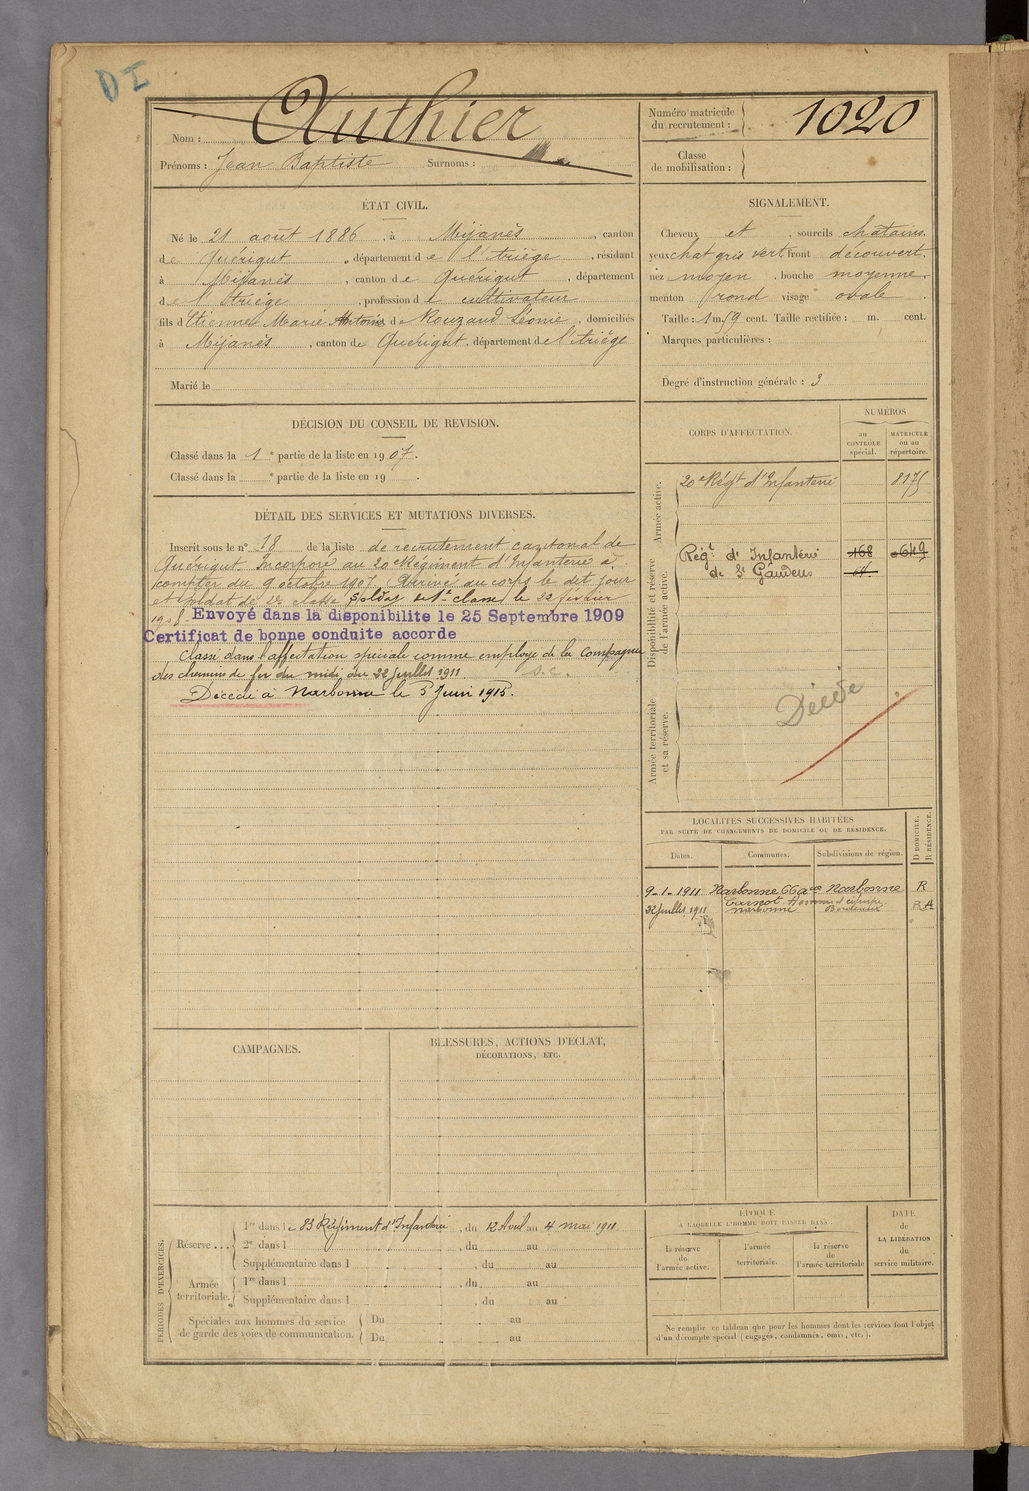 DI
Nom : Authier
Prénoms : Jean Baptiste Surnoms :
Numéro matricule
du recrutement : 1020
Classe
de mobilisation :
ÉTAT CIVIL.
Né le 21 août 1886, à Mijanès, canton
de Quérigut, département de l'Ariège, résidant
à Mijanès, canton de Quérigut, département
de l'Ariège, profession de cultivateur
fils d'Etienne Marie Antoine et de Rouzaud Léonie, domiciliés
à Mijanès, canton de Quérigut, département de l'Ariège
Marié le
SIGNALEMENT.
Cheveux et, sourcils chatains,
yeux chat gris vert, front découvert,
nez moyen, bouche moyenne,
menton rond visage ovale
Taille : 1 m. 59 cent. Taille rectifiée : m. cent.
Marques particulières :
Degré d'instruction générale : 3
DÉCISION DU CONSEIL DE REVISION.
Classé dans la 1e partie de la liste en 1907.
Classé dans la e partie de la liste en 19 .
DÉTAIL DES SERVICES ET MUTATIONS DIVERSES.
Inscrit sous le n° 18 de la liste de recrutement cantonal de
Quérigut. Incorporé au 20e Régiment d'Infanterie à
compter du 9 octobre 1907. Arrivé au corps le dit jour
et soldat de 2e classe. Soldat de 1e classe le 22 février
1908. Envoyé dans la disponibilite le 25 Septembre 1909
Certificat de bonne conduite accorde
Classé dans l'affectation spéciale comme employé de la Compagnie
des chemins de fer du midi du 22 Juillet 1911. S.C.
Décédé à Narbonne le 5 Juin 1915.
CORPS D'AFFECTATION.
NUMÉROS
au
CONTRÔLE
spécial.
MATRICULE
ou au
répertoire.
Armée active.
20e Régt d'Infanterie 8175
Disponibilité et réserve
de l'armée active.
Régt d'Infanterie 168 0649
de St Gaudens
Armée territoriale
et sa réserve.
Décédé
LOCALITÉS SUCCESSIVES HABITÉES
PAR SUITE DE CHANGEMENTS DE DOMICILE OU DE RÉSIDENCE.
D DOMICILE.
R RÉSIDENCE.
Dates. Communes. Subdivisions de région.
9-1-1911 Narbonne 66 Ave Narbonne R
Carnot
22 Juillet 1911 Narbonne Bordeaux R A
CAMPAGNES.
BLESSURES, ACTIONS D'ÉCLAT,
DÉCORATIONS, ETC.
PÉRIODES D'EXERCICES.
Réserve ...
1re dans le 83 Régiment d'Infanterie, du 12 Avril au 4 mai 1911
2e dans l , du au
Supplémentaire dans l , du au
Armée
territoriale.
1re dans l , du au
Supplémentaire dans l , du au
Spéciales aux hommes du service
de garde des voies de communication.
Du au
Du au
ÉPOQUE
A LAQUELLE L'HOMME DOIT PASSER DANS
la réserve
de
l'armée active.
l'armée
territoriale.
la réserve
de
l'armée territoriale
DATE
de
LA LIBÉRATION
du
service militaire.
Ne remplir ce tableau que pour les hommes dont les services font l'objet
d'un décompte spécial (engagés, condamnés, omis, etc.).